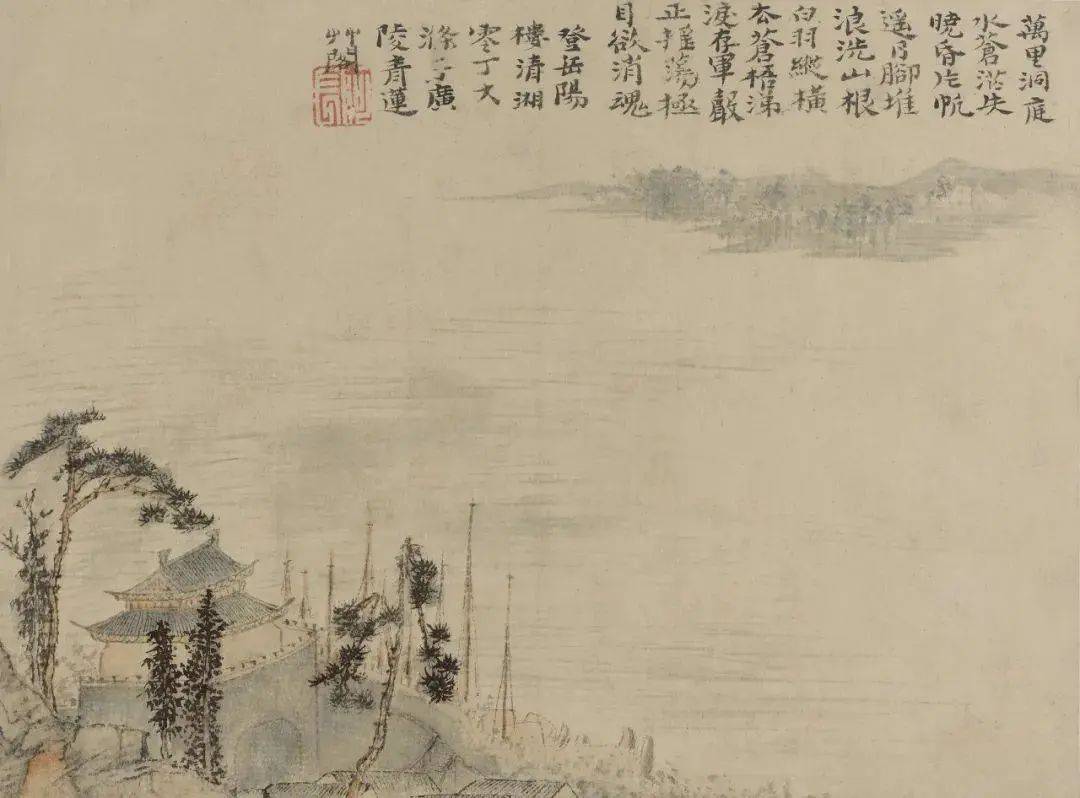 萬里洞庭
水蒼茫失
曉昏片帆
遙日腳堆
浪洗山根
白羽縱橫
去蒼梧涕
淚存軍聲
正搖蕩極
目欲消魂
登岳陽
樓清湘
零丁大
滌子廣
陵青蓮
艸閣